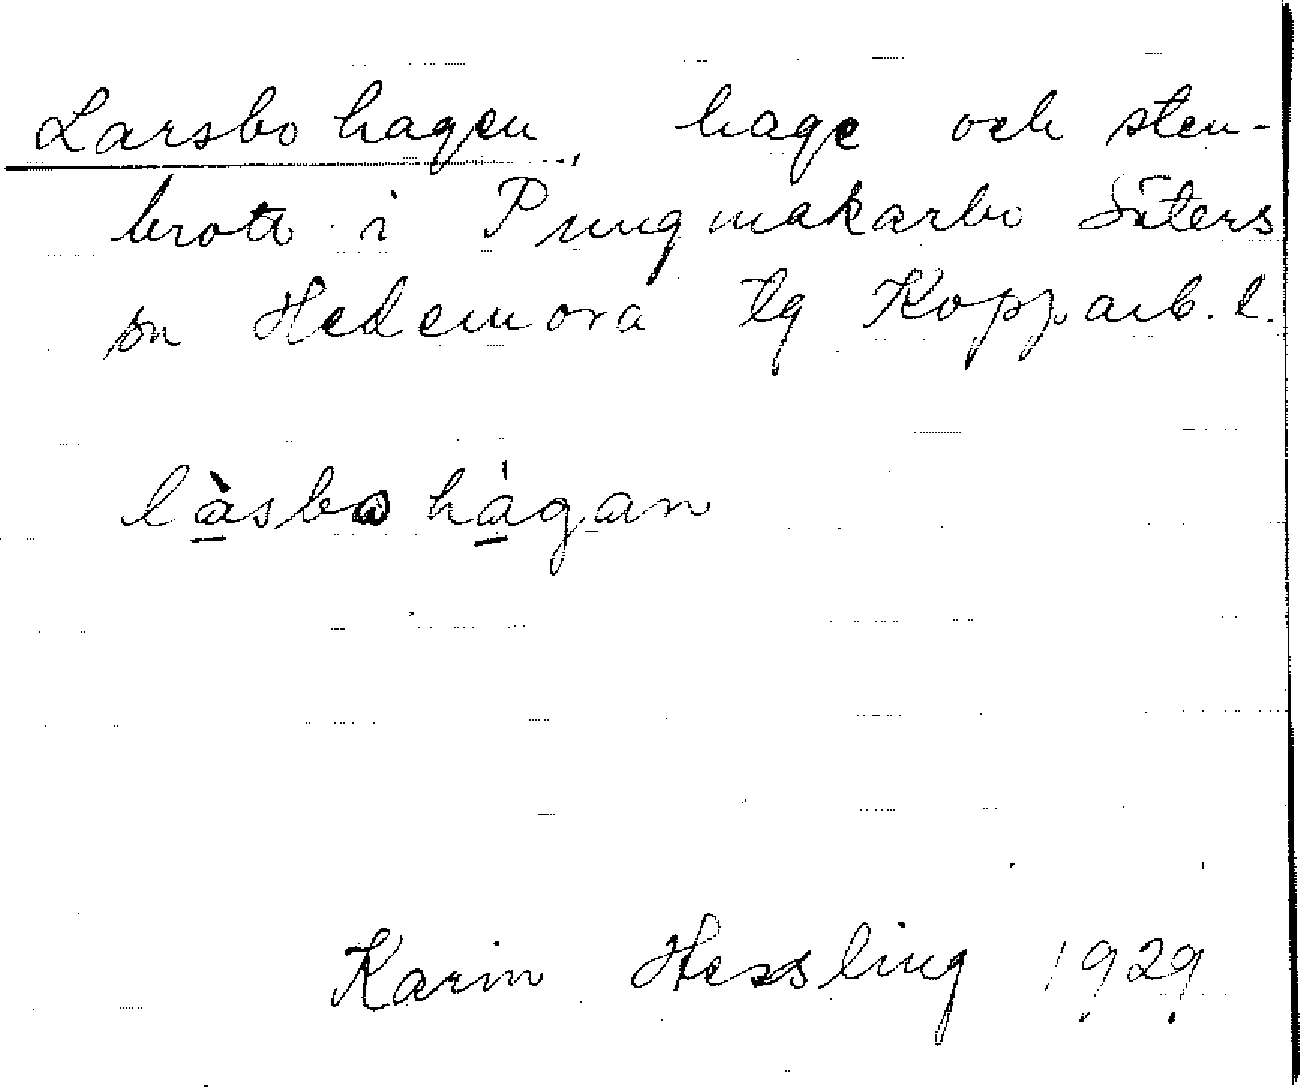 Larsbo hagen, hage och sten-
brott i Pungmakarbo Säters
sn Hedemora tg Kopparb. l.
làsbo hágan
Karin Hessling 1929